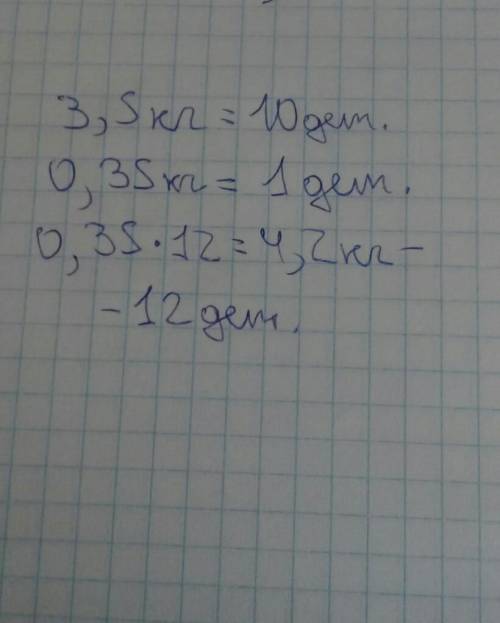 3,5кг = 10 дет.
0,35кг = 1 дет.
0,35·12=4,2кг–
–12 дет.